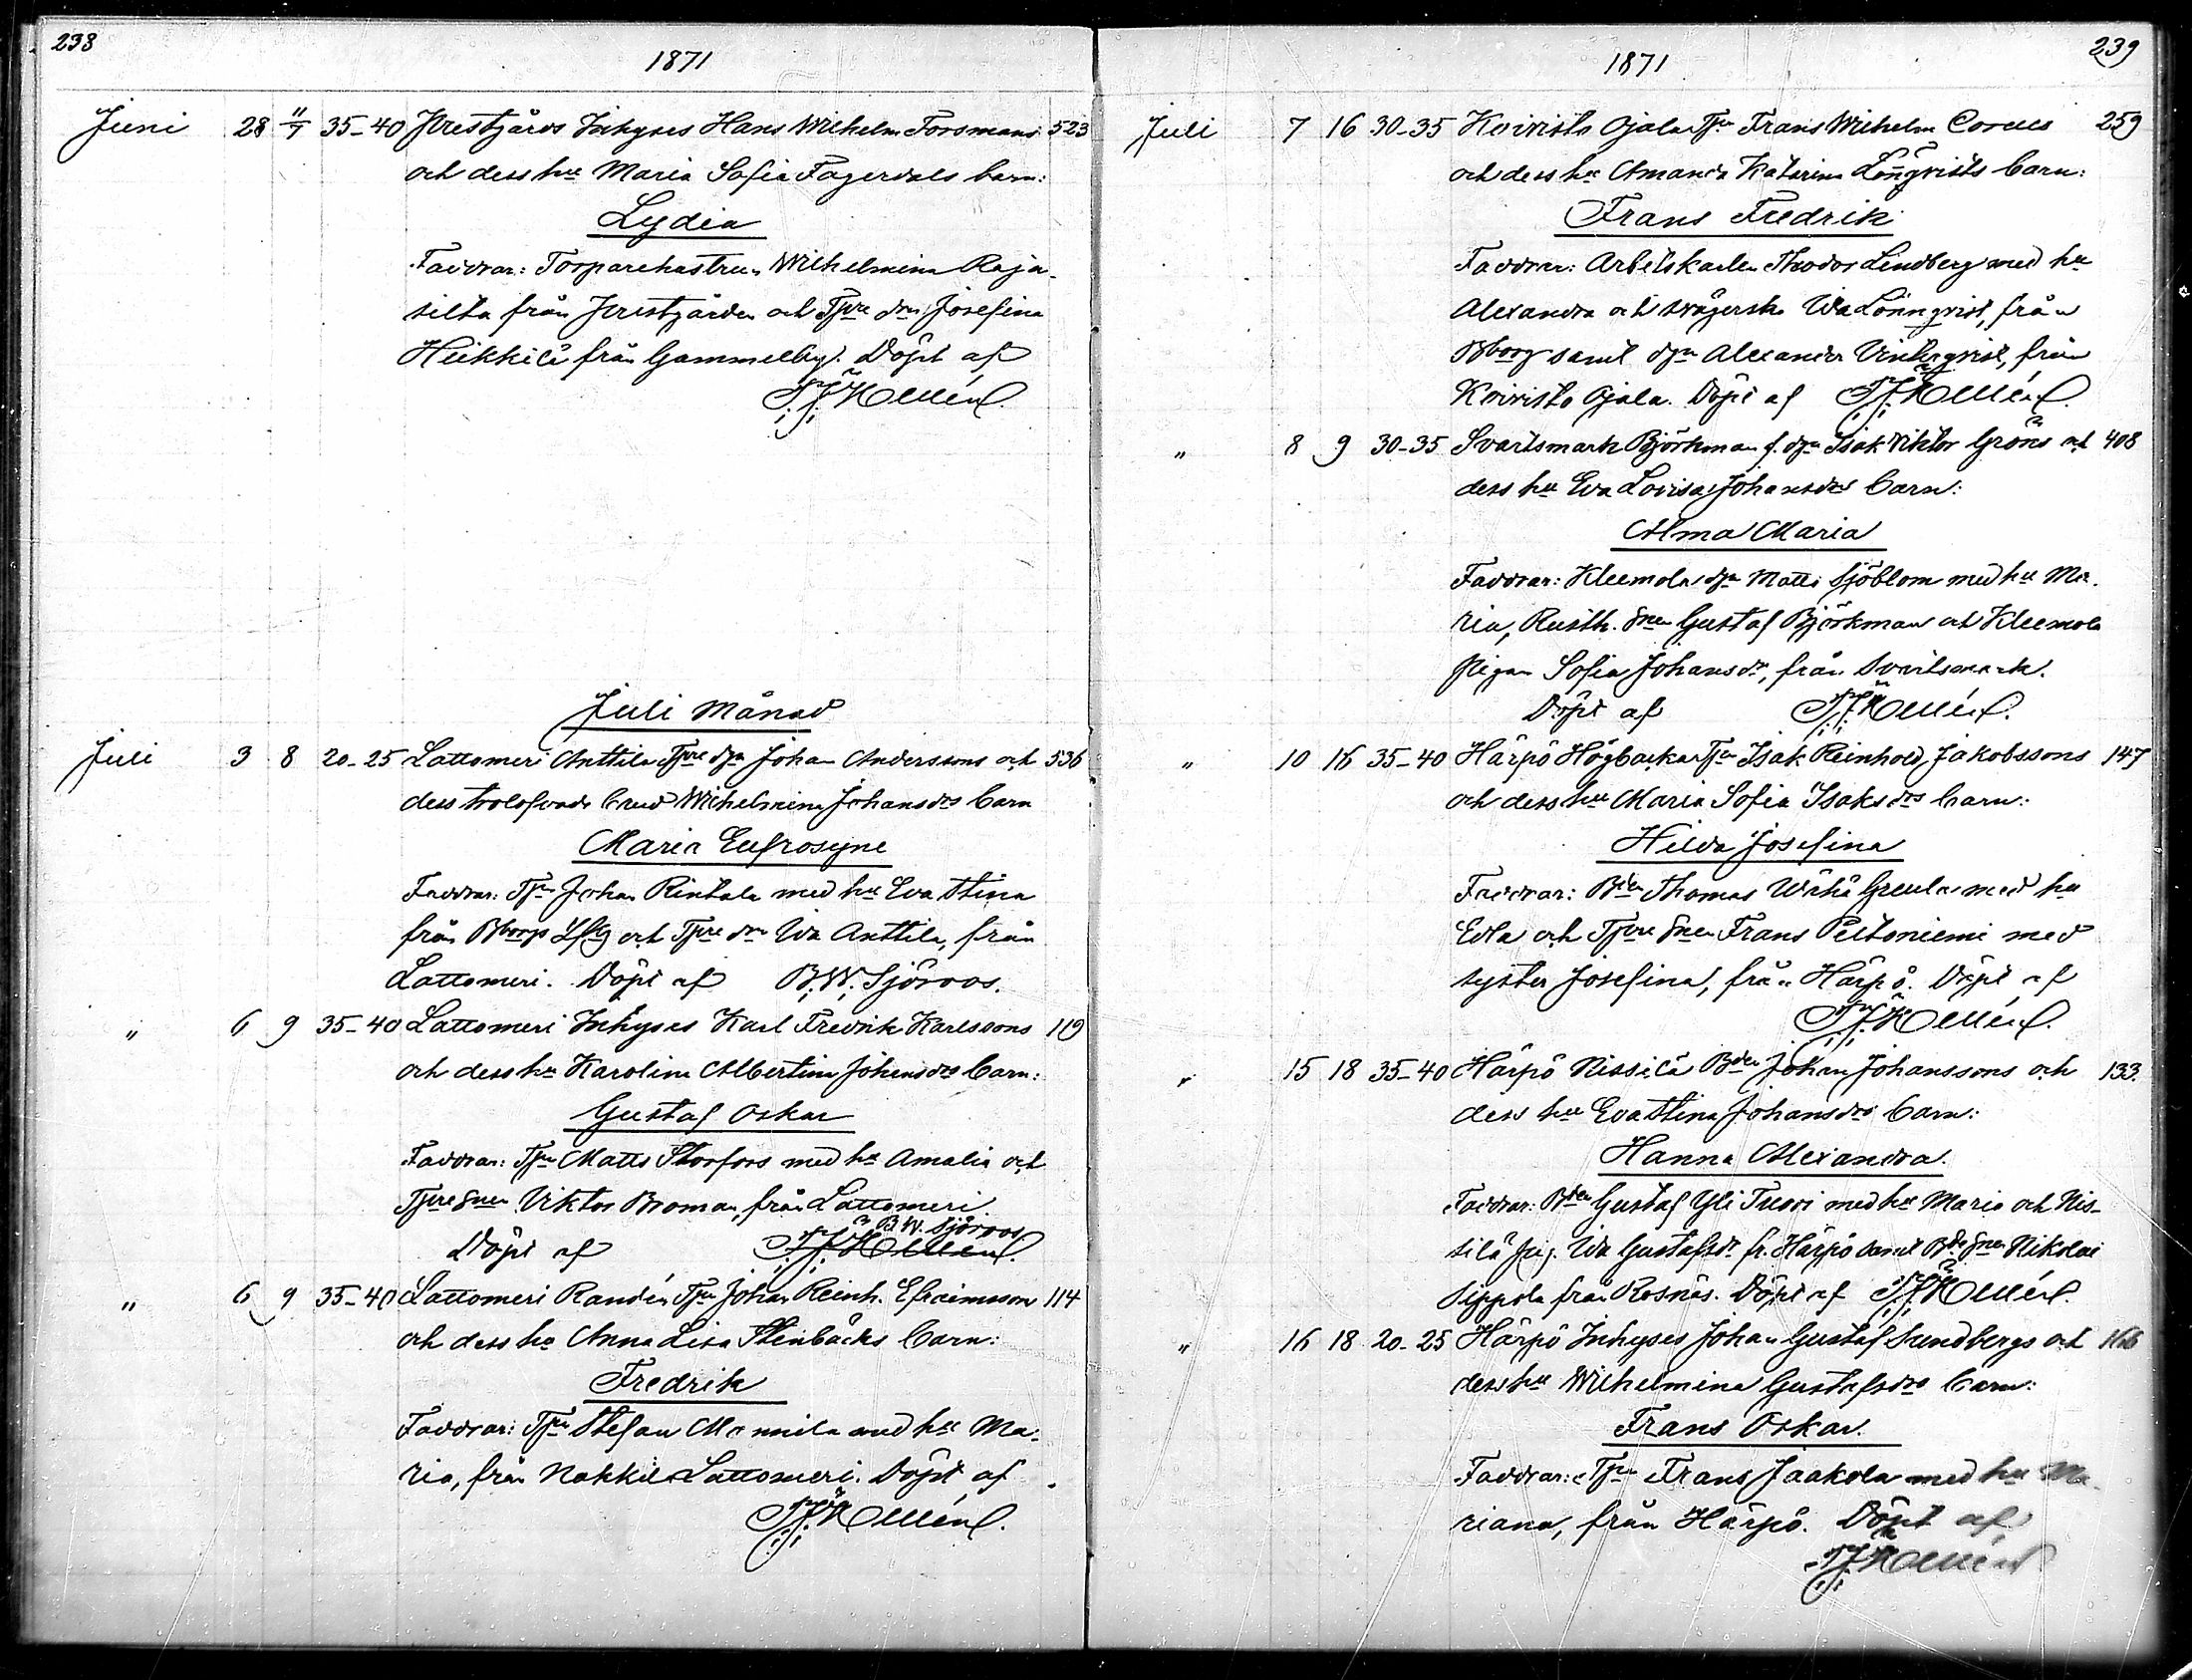 238
1871
Juni 28 11/7 35-40 Prestgårds Inhyses Hans Wilhelm Forsmans 523
och dess hu Maria Sofia Fagerdals barn:
Lydia
Faddrar: Torparehustrun Wilhelmina Raja-
silta från Prestgården och Tjre drn Josefina
Heikkilä från Gammelby. Döpt af
Juli Månad
Juli 3 8 20-25 Lattomeri Anttila Tjre djn Johan Anderssons och 536
dess trolofvade brud Wilhelmina Johansdrs barn
Maria Eufrosyne
Faddrar: Tjn Johan Rintala med hu Eva Stina
från Bborgs och Tjre drn Ida Anttila, från
Lattomeri. Döpt af B.W. Sjöroos.
" 6 9 35-40 Lattomeri Inhyses Karl Fredrik Karlssons 119
och dess hu Karolina Albertina Johansdrs barn:
Gustaf Oskar
Faddrar: Tjn Matts Storfors med hu Amalia och
Tjre Snen Viktor Broman, från Lattomeri.
B.W. Sjöroos
Döpt af
" 6 9 35-40 Lattomeri Randén Tjn Johan Reinh. Efraimsson 114
och dess hu Anna Lisa Stenbäcks barn:
Fredrik
Faddrar: Tjn Stefan Mannila med hu Ma-
ria, från Nakkila Lattomeri. Döpt af
239
1871
Juli 7 16 30-35 Koivisto Ojala Tjn Frans Wilhelm 259
och dess hu Amanda Katarina Lönqvists barn:
Frans Fredrik
Faddrar: Arbetskarlen Thodor Lindberg med hu
Alexandra och svägersk. Ida Lönnqvist, från
Bborg samt djn Alexander Vinkqvist, från
Koivisto Ojala. Döpt af
" 8 9 30-35 Svartsmark Björkman f. djn Isak Viktor Gröns och 408
dess hu Eva Lovisa Johansdrs barn:
Alma Maria
Faddrar: Kleemola djn Matts Sjöblom med hu Ma-
ria, Rusth. Snen Gustaf Björkman och Kleemola
pigan Sofia Johansdr, från Svartsmark.
Döpt af
" 10 16 35-40 Härpö Högbacka Tjn Isak Reinhold Jakobssons 147
och dess hu Maria Sofia Isaksdrs barn:
Hilda Josefina
Faddrar: Bden Thomas Wähä Greula med hu
Edla och Tjre Snen Frans Peltoniemi med
syster Josefina, från Härpö. Döpt af
" 15 18 35-40 Härpö Nissilä Bden Johan Johanssons och 133.
dess hu Eva Stina Johansdrs barn:
Hanna Alexandra.
Faddrar: Bden Gustaf Yli Tuori med hu Maria och Nis-
silä pig. Ida Gustafsdr fr. Härpö samt Bde Snen Nikolai
Sippola från Rosnäs. Döpt af
" 16 18 20-25 Härpö Inhyses Johan Gustaf Sundbergs och 166
dess hu Wilhelmina Gustafsdrs barn:
Frans Oskar.
Faddrar: Tjn Frans Jaakola med hu Ma-
riana, från Härpö. Döpt af